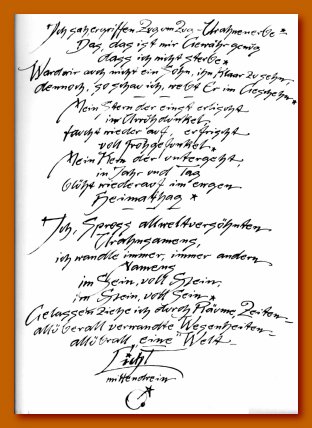 "Ich sah ergriffen Zug um Zug - Urahnenerbe".
Das, das ist mir Gewähr genug
dass ich nicht sterbe*
Ward mir auch nicht ein Sohn, ihn klar zu sehn,
dennoch, so schau ich, webt Er im Geschehn*
Mein Stern der einst erlischt
im Urröhdunkel,
taucht wieder auf, erfrischt
voll Frohgefunkel*
Mein Kern der untergeht,
in Jahr und Tag
blüht wieder auf im ewgen
Heimathag *
Ich, Spross allweltversöhnten
Urahnsamens,
ich wandle immer, immer andern
Namens
im Sein, voll Stein,
im Stein, voll Sein*
Gelassen ziehe ich durch Räume, Zeiten -
allüberall verwandte Wesenheiten -
allüberall "eine" Welt
Licht
mittendrein